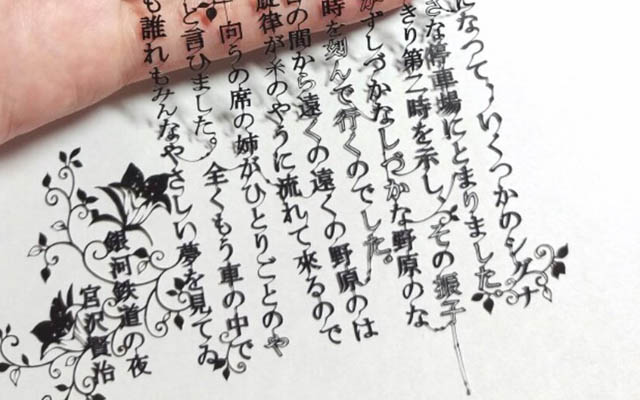 になつて、いくつかのシグナ
さな停車場にとまりました。
きり第二時を示し、その振子
ずしづかなしづかな野原のな
時を刻んで行くのでした。
の間から遠くの遠くの野原のは
旋律が糸のやうに流れて來るので
向うの席の姉がひとりごとのや
と言ひました。全くもう車の中で
も誰れもみんなやさしい夢を見てゐ
銀河鉄道の夜
宮沢賢治